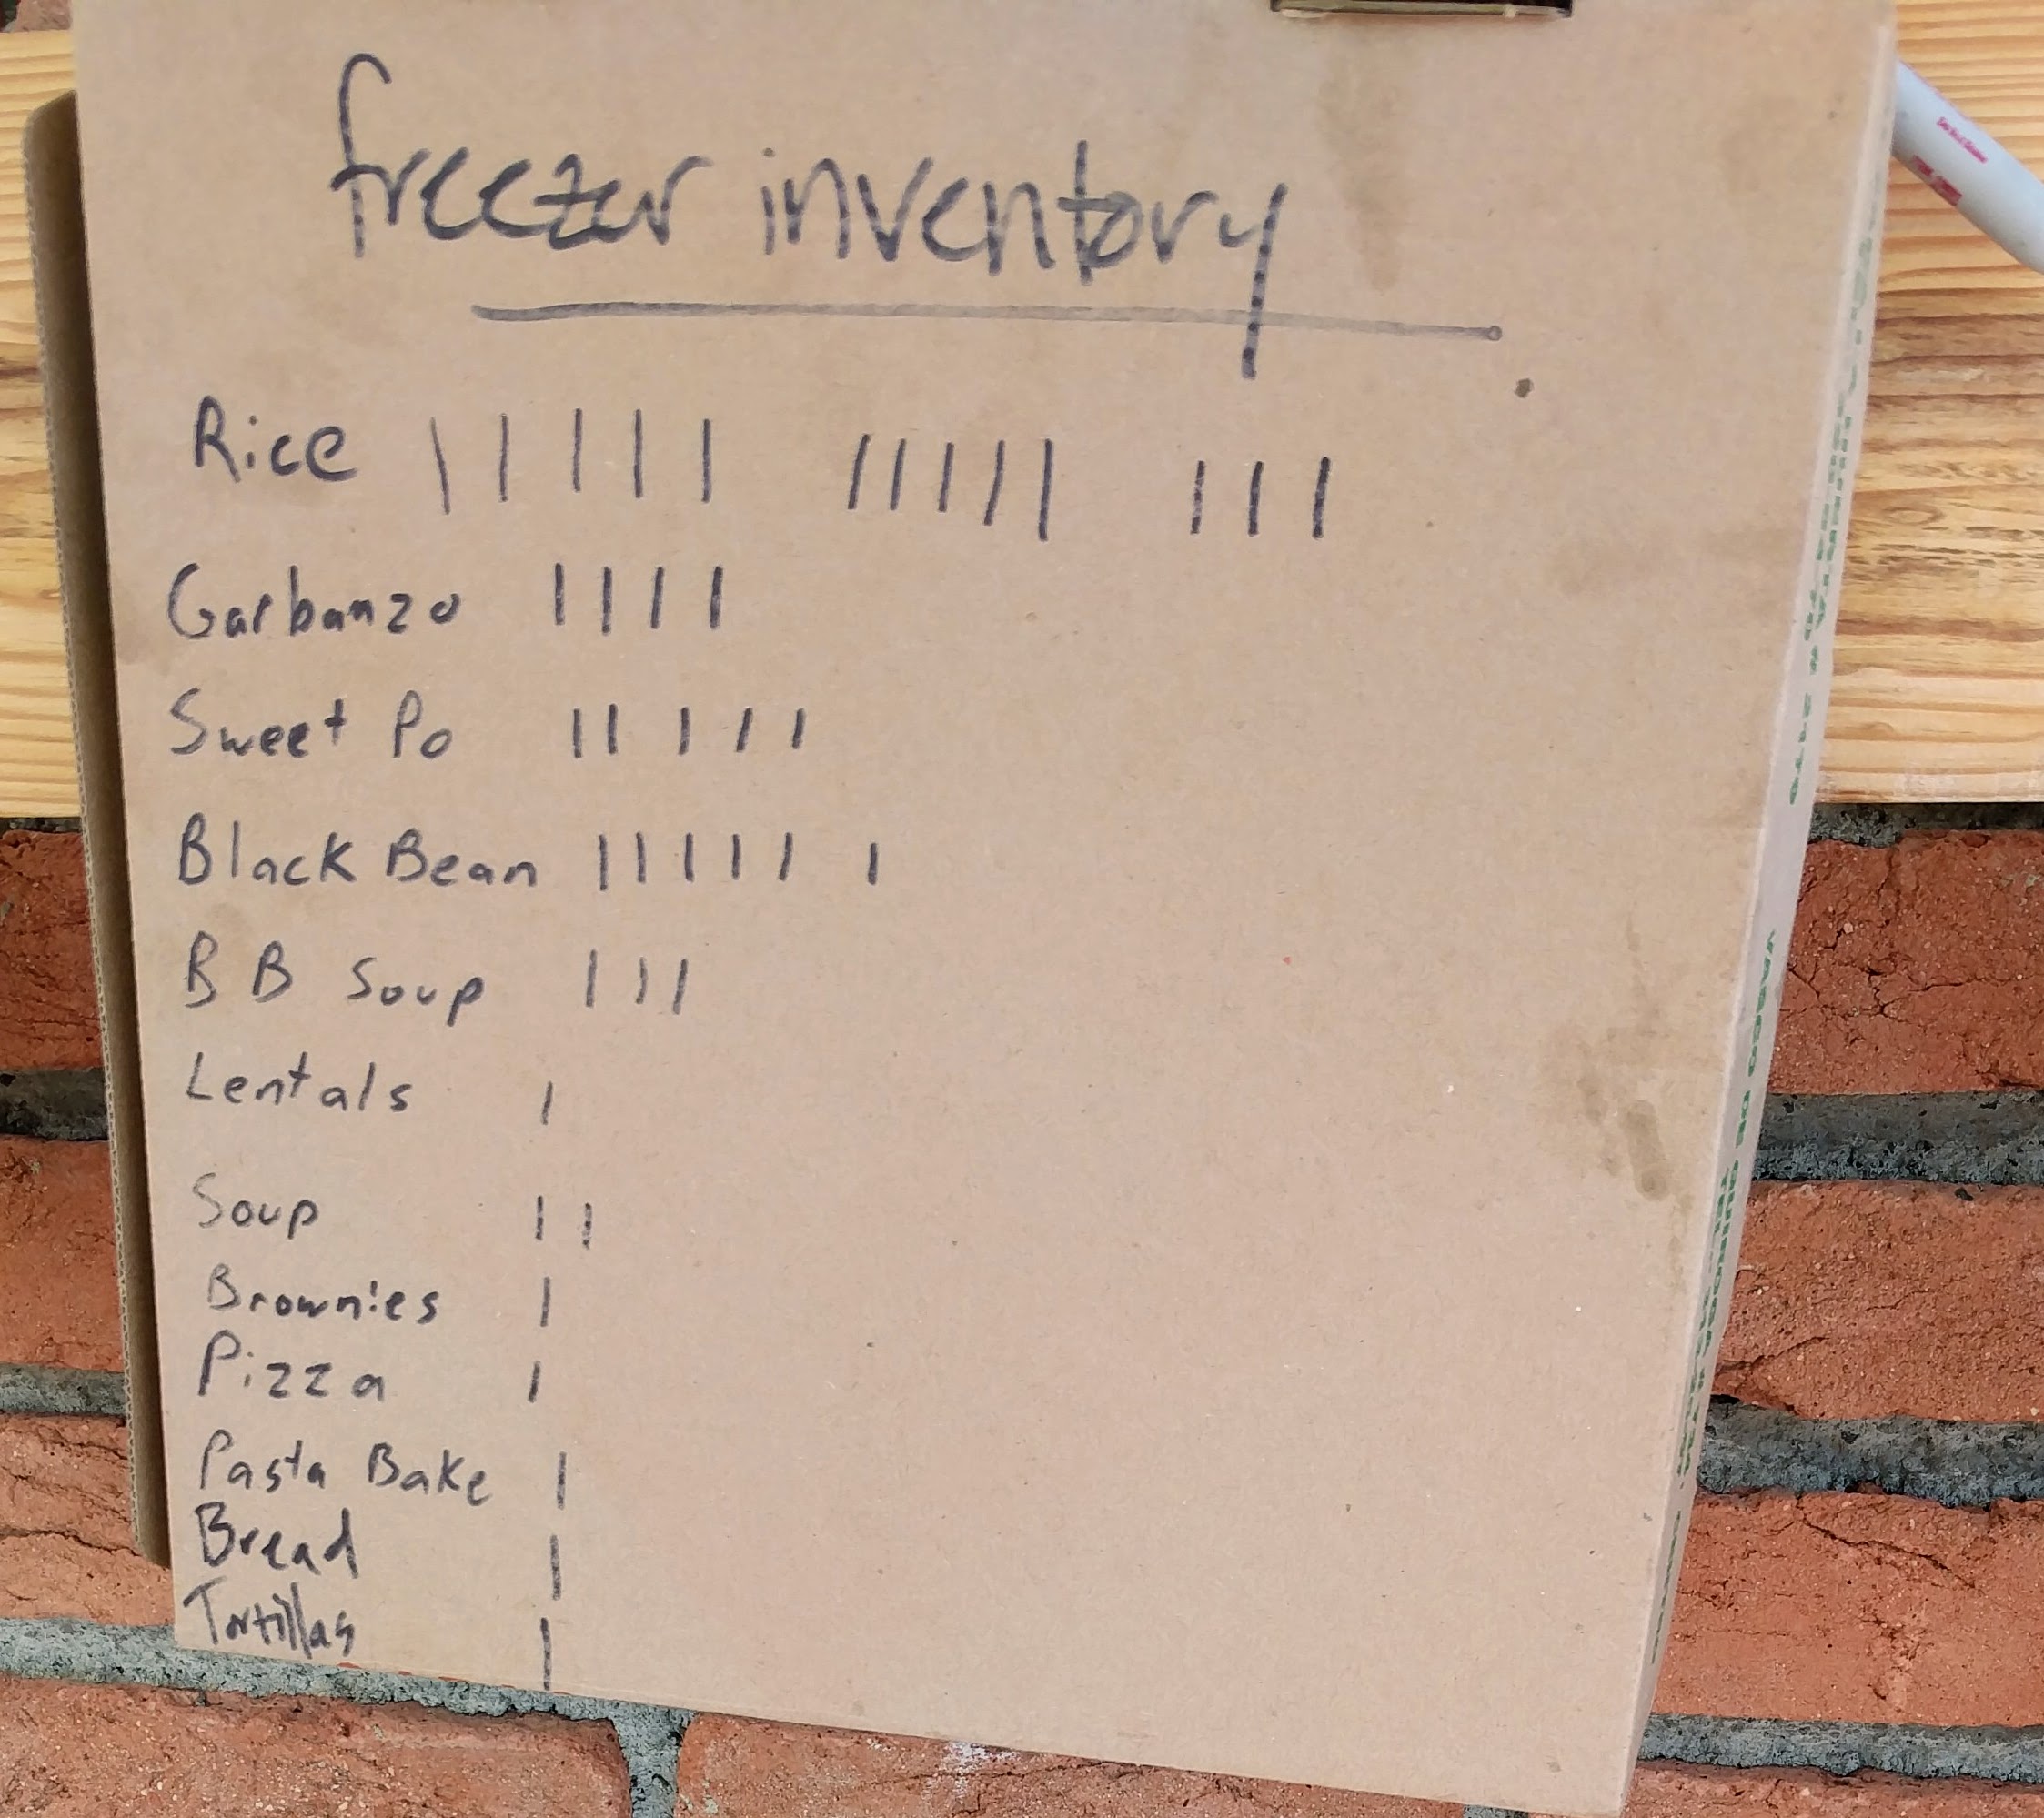 freezer inventory
Rice ||||| ||||| |||
Garbanzo ||||
Sweet Po |||||
Black Bean ||||| |
B B Soup |||
Lentals |
Soup ||
Brownies |
Pizza |
Pasta Bake |
Bread |
Tortillas |